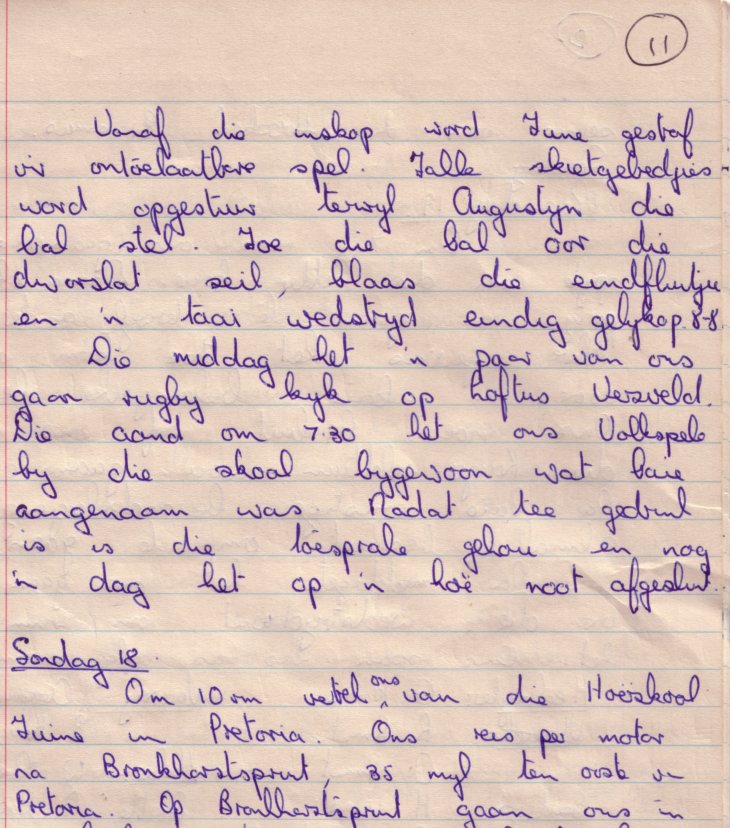 11
Vanaf die inskop word Tuine gestraf
vir ontoelaatbare spel. Talle skietgebedjies
word opgestuur terwyl Augustyn die
bal stel. Toe die bal oor die
dwarslat seil, blaas die eindfluitjie
en 'n taai wedstryd eindig gelykop 8-8.
Die middag het 'n paar van ons
gaan rugby kyk op Loftus Versveld.
Die aand om 7.30 het ons Volkspele
by die skool bygewoon wat baie
aangenaam was. Nadat tee gedrink
is is die toesprake gehou en nog
'n dag het op 'n hoë noot afgesluit.
Sondag 18.
Om 10 vm vertrek ons van die Hoërskool
Tuine in Pretoria. Ons reis per motor
na Bronkhorstspruit, 35 myl ten ooste van
Pretoria. Op Bronkhorstspruit gaan ons in